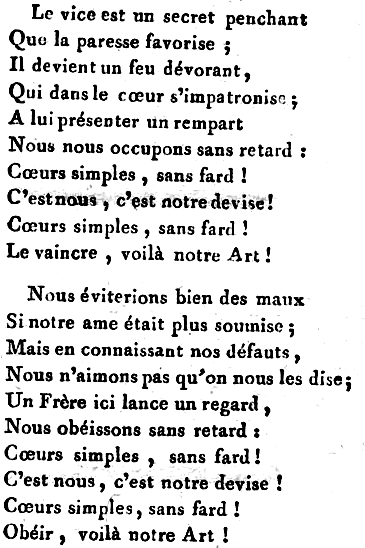 Le vice est un secret penchant
Que la paresse favorise ;
Il devient un feu dévorant,
Qui dans le cœur s'impatronise ;
A lui présenter un rempart
Nous nous occupons sans retard :
Cœurs simples , sans fard !
C'est nous , c'est notre devise !
Cœurs simples , sans fard !
Le vaincre , voilà notre Art !
Nous éviterions bien des maux
Si notre ame était plus soumise ;
Mais en connaissant nos défauts,
Nous n'aimons pas qu'on nous les dise;
Un Frère ici lance un regard ,
Nous obéissons sans retard :
Cœurs simples , sans fard !
C'est nous , c'est notre devise !
Cœurs simples, sans fard !
Obéir , voilà notre Art !